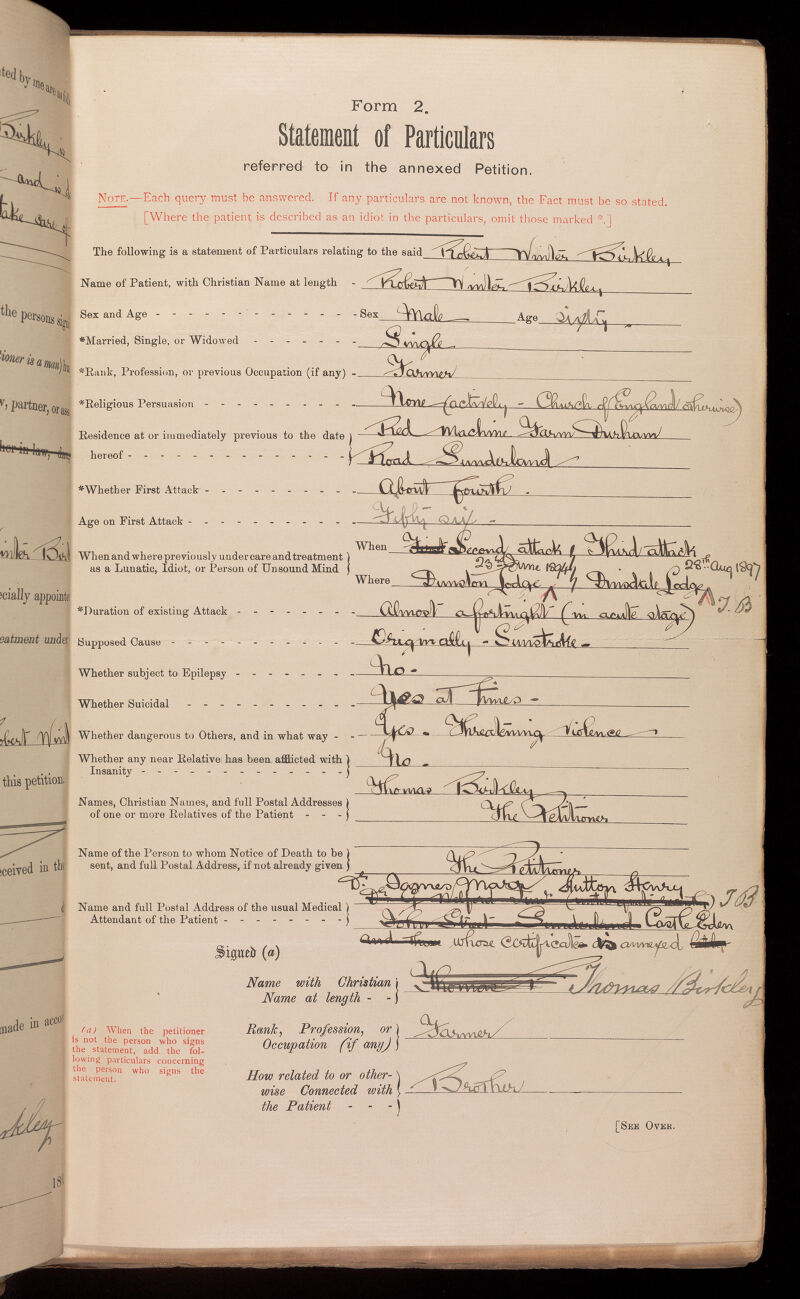 ted by me are
Birkley is
and is
take care of
the persons sign
tioner is a man
, partner, or
her in law,
Winter Birk
ecially appointe
eatment unde
obert Wint
this petition.
eceived in th
made in acco
rkley
18
Form 2.
Statement of Particulars
referred to in the annexed Petition.
NOTE.—Each query must be answered. If any particulars are not known, the Fact must be so stated.
[Where the patient is described as an idiot in the particulars, omit those marked *.]
The following is a statement of Particulars relating to the said Robert Winter Birkley
Name of Patient, with Christian Name at length - Robert Winter Birkley
Sex and Age - - - - - - - - - - - - - Sex Male Age sixty
*Married, Single, or Widowed - - - - - - - Single
*Rank, Profession, or previous Occupation (if any) - Farmer
*Religious Persuasion - - - - - - - - - - None (actively - Church of England otherwise)
Residence at or immediately previous to the date Red Machine Farm Durham
hereof - - - - - - - - - - - - - - Road Sunderland
*Whether First Attack - - - - - - - - - - About fourth.
Age on First Attack - - - - - - - - - - - Fifty six -
When First Second attack & Third attack
When and where previously under care and treatment
23rd June 1894 28th Aug 1897
as a Lunatic, Idiot, or Person of Unsound Mind
Where Dunston Lodge & Dinsdale Lodge
T.B
*Duration of existing Attack - - - - - - - - Almost a fortnight (in acute stage)
Supposed Cause - - - - - - - - - - - - Originally - Sunstroke -
Whether subject to Epilepsy - - - - - - - - No -
Whether Suicidal - - - - - - - - - - - Yes at times -
Whether dangerous to Others, and in what way - - Yes - Threatening violence
Whether any near Relative has been afflicted with No -
Insanity - - - - - - - - - - - - -
Thomas Birkley
Names, Christian Names, and full Postal Addresses The Petitioner
of one or more Relatives of the Patient - - -
Name of the Person to whom Notice of Death to be The Petitioner
sent, and full Postal Address, if not already given
Dr. James Marr, Hutton Henry
T B
Name and full Postal Address of the usual Medical
Attendant of the Patient - - - - - - - - John Street Sunderland Castle Eden
and those whose certificate is annexed
Signed (a)
Name with Christian Thomas Thomas Birkley
Name at length - -
Rank, Profession, or Farmer
Occupation (if any)
How related to or other- Brother
wise Connected with
the Patient - - -
(a) When the petitioner
is not the person who signs
the statement, add the fol-
lowing particulars concerning
the person who signs the
statement.
[SEE OVER.